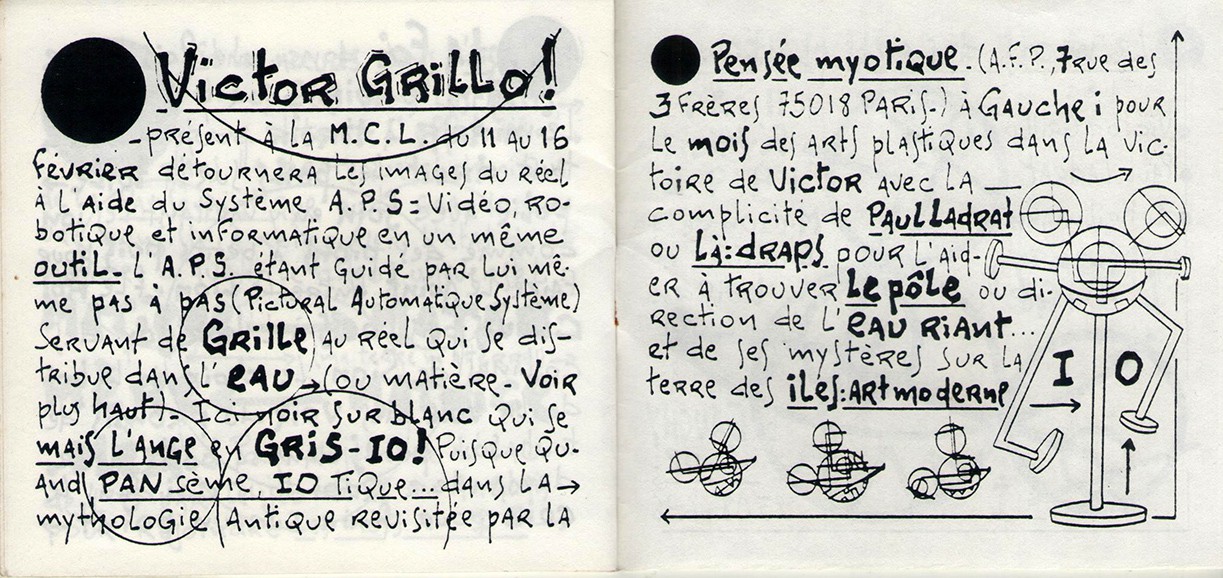 Victor Grillo!
-présent à la M.C.L. du 11 au 16
février détournera les images du réel
à l'aide du Système. A.P.S = Vidéo, ro-
botique et informatique en un même
outil. l'A.P.S. étant guidé par lui mê-
me pas à pas (Pictural Automatique Système)
Servant de Grille au réel qui se dis-
tribue dans l'eau → (ou matière. Voir
plus haut)- Ici noir sur blanc qui se
mais l'ange en Gris-IO! Puisque qu-
and PAN sème, IO Tique... dans la →
mythologie Antique revisitée par la
Pensée myotique. (A.F.P., 7 rue des
3 Frères 75018 PARIS.) à Gauche i pour
le mois des arts plastiques dans la vic-
toire de Victor avec la —
complicité de Paul Ladrat
ou Là:draps pour l'aid-
er à trouver Le pôle ou di-
rection de l'eau riant...
et de ses mystères sur la
terre des iles:Art moderne
I O